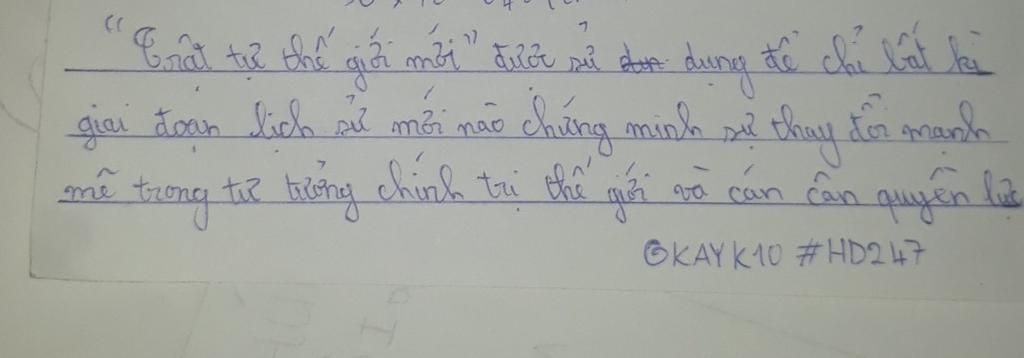 "Trật tự thế giới mới" được sử dụng để chỉ bất kì
giai đoạn lịch sử mới nào chứng minh sự thay đổi mạnh
mẽ trong tư tưởng chính trị thế giới và cán cân quyền lực
OKAYK10 #HD247